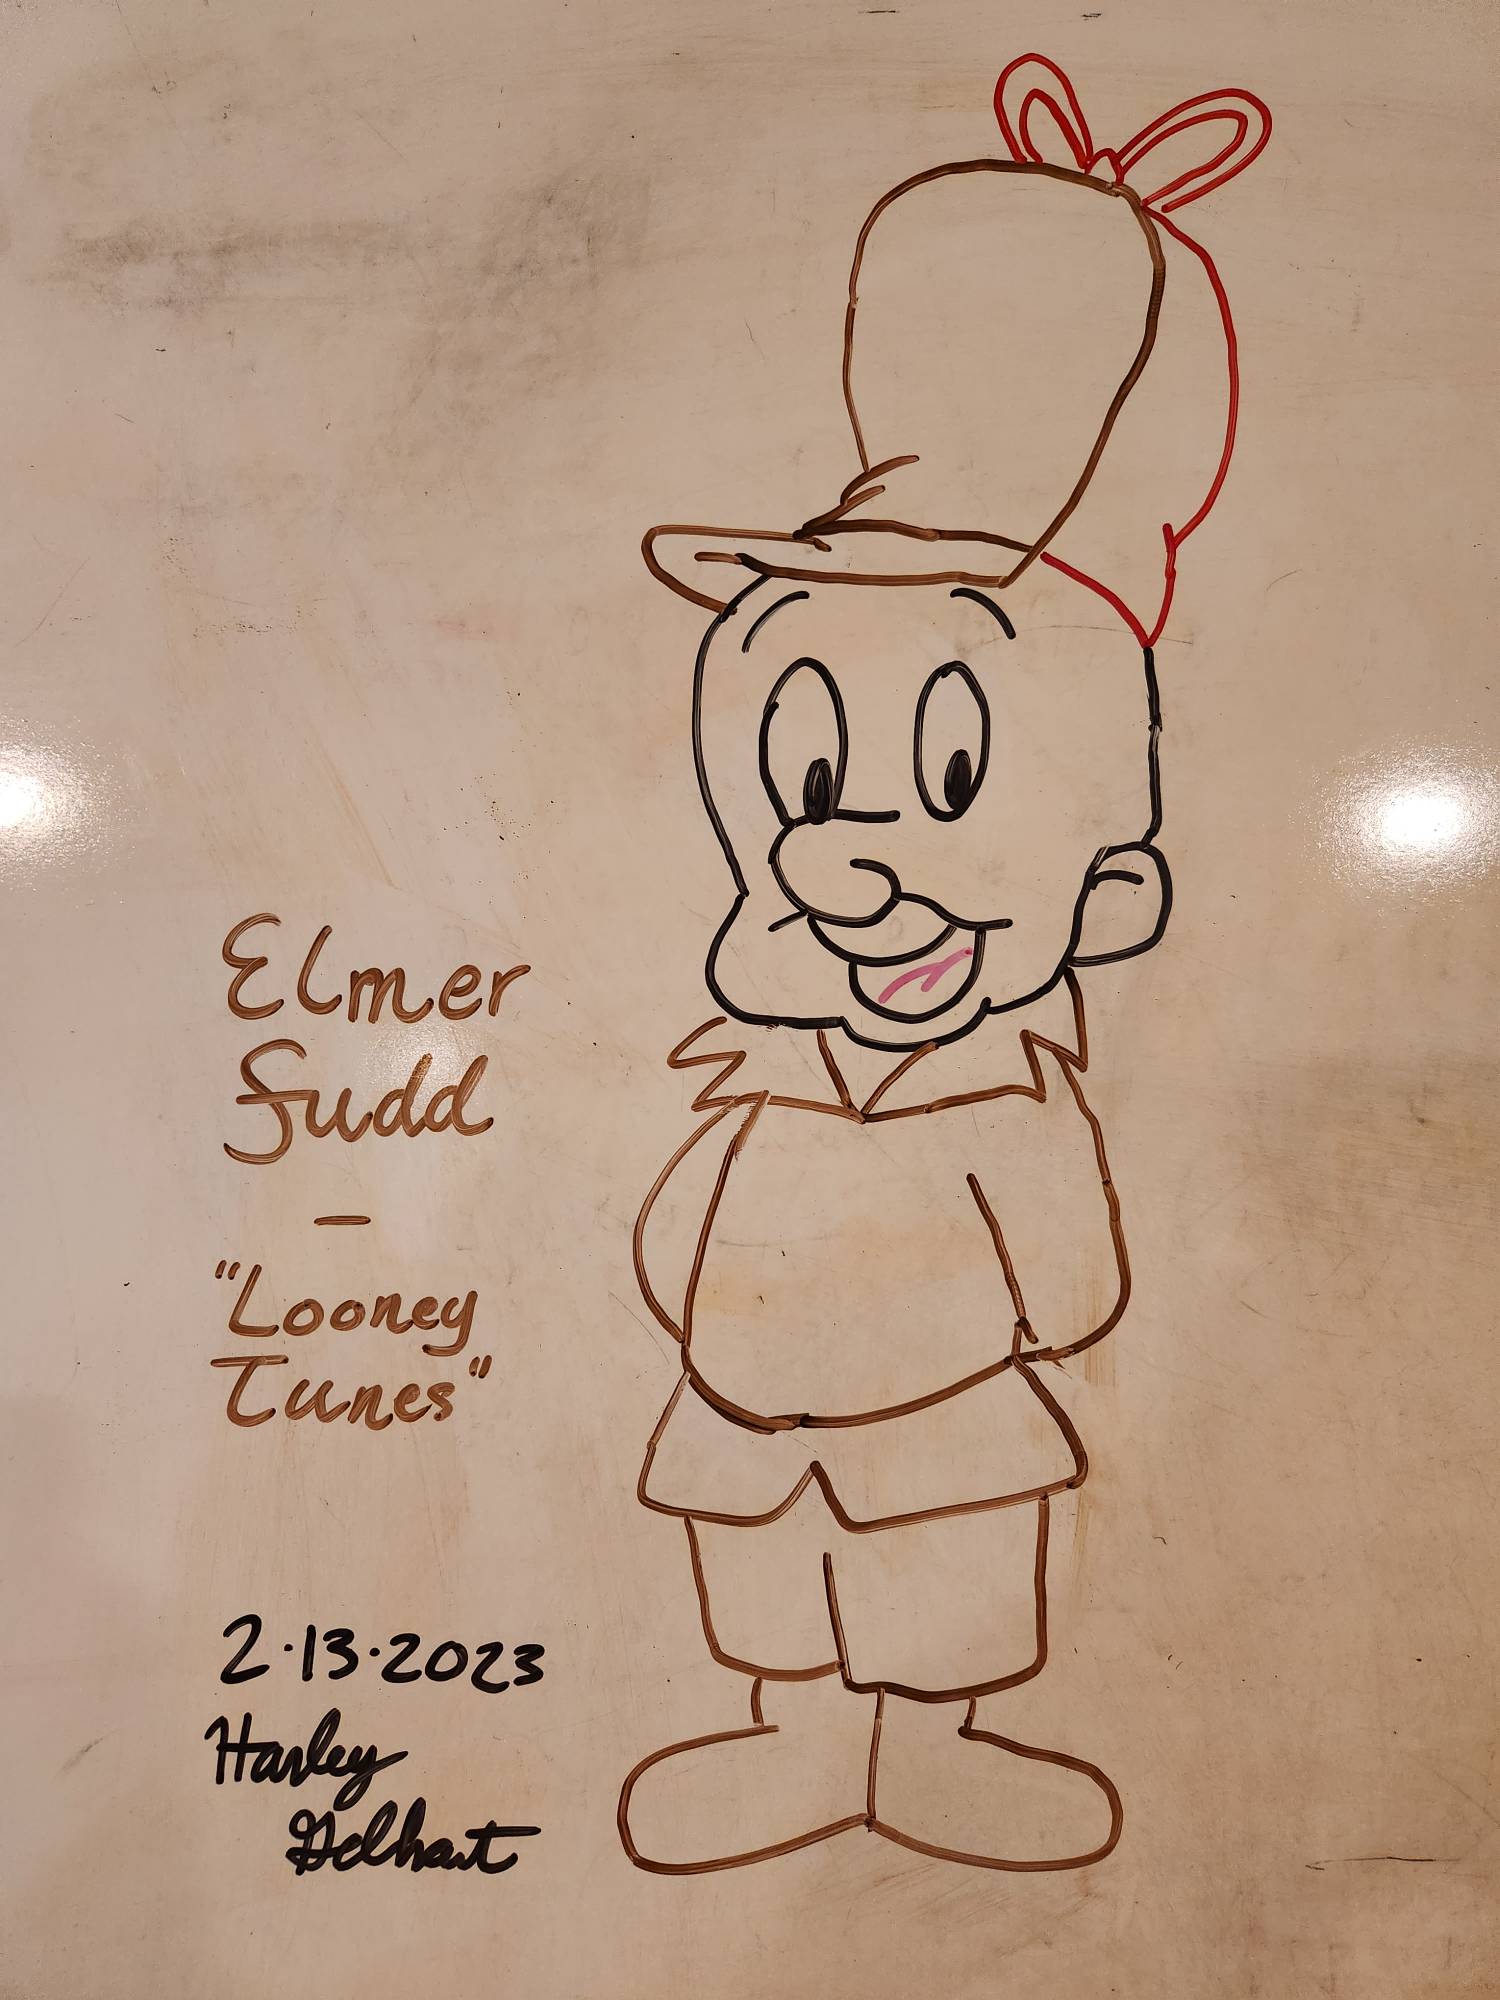 Elmer
Fudd
–
"Looney
Tunes"
2·13·2023
Harley
Gelhart